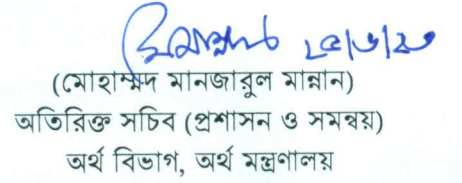 ২৫/৬/২৩
(মোহাম্মদ মানজারুল মান্নান)
অতিরিক্ত সচিব (প্রশাসন ও সমন্বয়)
অর্থ বিভাগ, অর্থ মন্ত্রণালয়